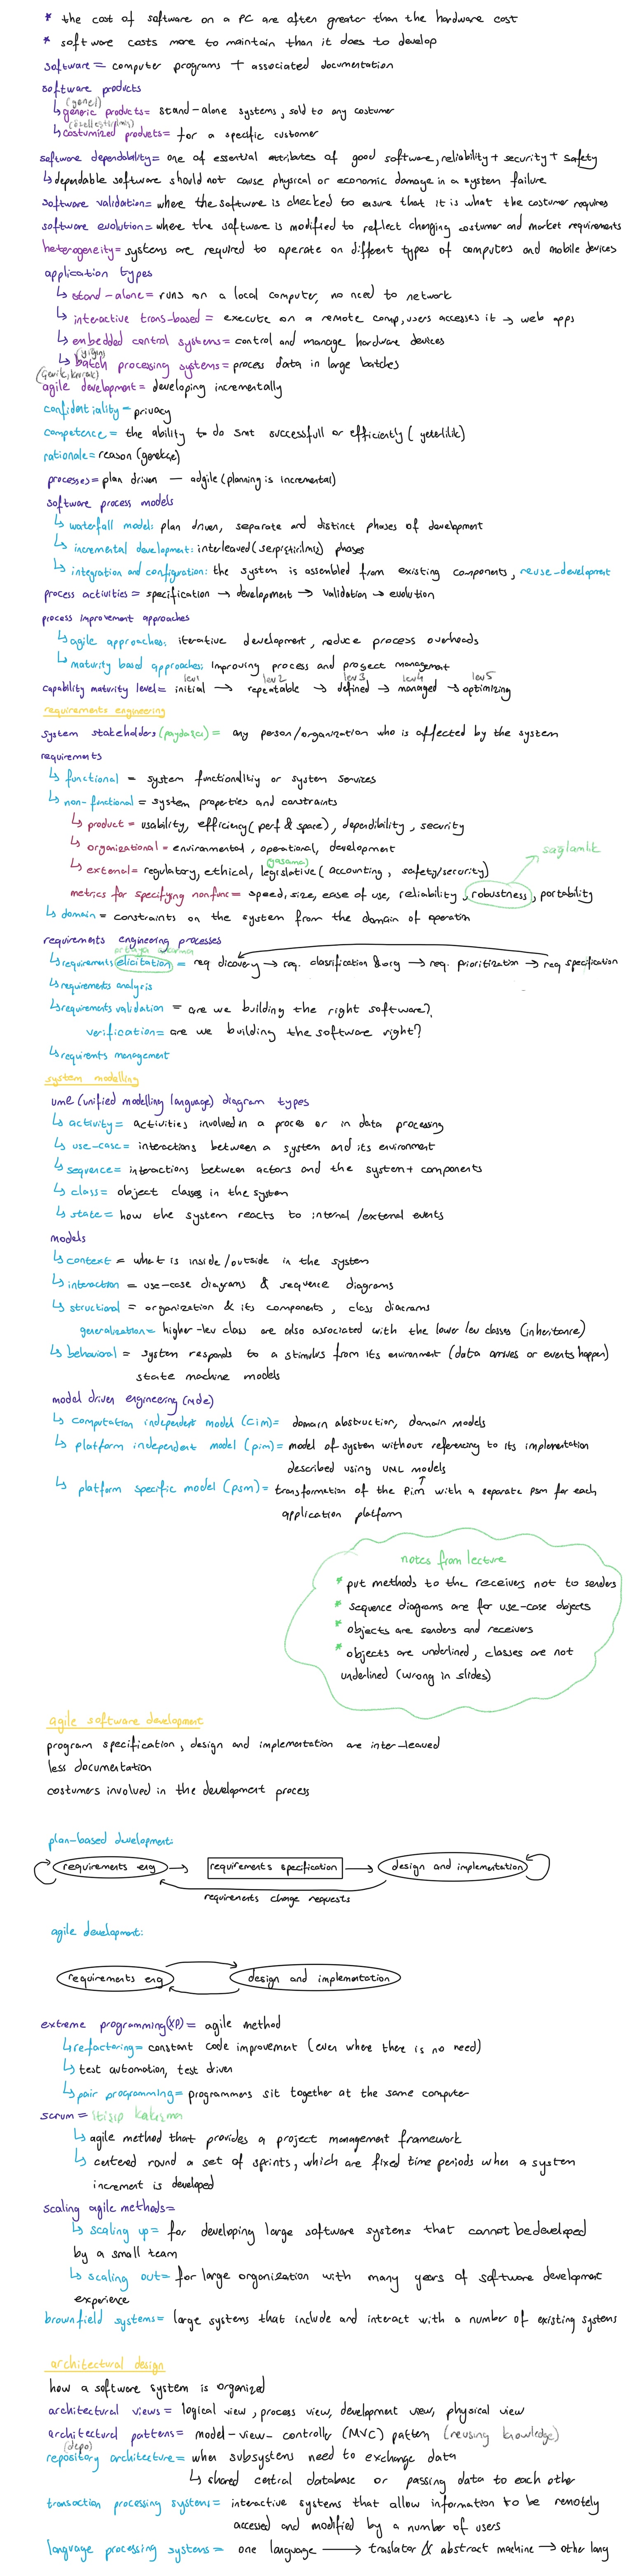 * the cost of software on a PC are often greater than the hardware cost
* software costs more to maintain than it does to develop
software = computer programs + associated documentation
software products
(genel)
↳ generic products = stand-alone systems, sold to any costumer
(özelleştirilmiş)
↳ costumized products = for a specific customer
software dependability = one of essential attributes of good software, reliability + security + safety
↳ dependable software should not cause physical or economic damage in a system failure
software validation = where the software is checked to ensure that it is what the costumer requires
software evolution = where the software is modified to reflect changing costumer and market requirements
heterogeneity = systems are required to operate on different types of computers and mobile devices
application types
↳ stand-alone = runs on a local computer, no need to network
↳ interactive trans-based = execute on a remote comp, users accesses it → web apps
↳ embedded control systems = control and manage hardware devices
(yığın)
↳ batch processing systems = process data in large batches
(çevik, kıvrak)
agile development = developing incrementally
confidentiality = privacy
competence = the ability to do smt successfull or efficiently (yeterlilik)
rationale = reason (gerekçe)
processes = plan driven — adgile (planning is incremental)
software process models
↳ waterfall model: plan driven, separate and distinct phases of development
↳ incremental development: interleaved (serpiştirilmiş) phases
↳ integration and configuration: the system is assembled from existing components, reuse-development
process activities = specification → development → validation → evolution
process improvement approaches
↳ agile approaches: iterative development, reduce process overheads
↳ maturity based approaches: improving process and project management
lev1 lev2 lev3 lev4 lev5
capability maturity level = initial → repeatable → defined → managed → optimizing
requirements engineering
system stakeholders (paydaşçı) = any person/organization who is affected by the system
requirements
↳ functional = system functionality or system services
↳ non-functional = system properties and constraints
↳ product = usability, efficiency (perf & space), dependibility, security
↳ organizational = environmental, operational, development
(yasama)
↳ external = regulatory, ethical, legislative (accounting, safety/security)
sağlamlık
metrics for specifying nonfunc = speed, size, ease of use, reliability, robustness, portability
↳ domain = constraints on the system from the domain of operation
requirements engineering processes
ortaya çıkarma
↳ requirements elicitation = req dicovery → req. classification & org → req. prioritization → req specification
↳ requirements analysis
↳ requirements validation = are we building the right software?
verification = are we building the software right?
↳ requirents management
system modelling
uml (unified modelling language) diagram types
↳ activity = activities involved in a proces or in data processing
↳ use-case = interactions between a system and its environment
↳ sequence = interactions between actors and the system + components
↳ class = object classes in the system
↳ state = how the system reacts to internal/external events
models
↳ context = what is inside/outside in the system
↳ interaction = use-case diagrams & sequence diagrams
↳ structional = organization & its components, class diacrams
generalization = higher-lev class are also associated with the lower lev classes (inheritance)
↳ behavioral = system responds to a stimulus from its environment (data arrives or events happen)
state machine models
model driven engineering (mde)
↳ computation independent model (cim) = domain abstraction, domain models
↳ platform independent model (pim) = model of system without referencing to its implementation
described using UML models
↳ platform specific model (psm) = transformation of the pim with a separate psm for each
application platform
notes from lecture
* put methods to the receivers not to senders
* sequence diagrams are for use-case objects
* objects are senders and receivers
* objects are underlined, classes are not
underlined (wrong in slides)
agile software development
program specification, design and implementation are inter-leaved
less documentation
costumers involved in the development process
plan-based development:
requirements eng → requirements specification → design and implementation
requirements change requests
agile development:
requirements eng design and implementation
extreme programming (xp) = agile method
↳ refactoring = constant code improvement (even where there is no need)
↳ test automation, test driven
↳ pair programming = programmers sit together at the same computer
scrum = itişip kakışma
↳ agile method that provides a project management framework
↳ centered round a set of sprints, which are fixed time periods when a system
increment is developed
scaling agile methods =
↳ scaling up = for developing large software systens that cannot be developed
by a small team
↳ scaling out = for large organization with many years of software development
experience
brownfield systems = large systems that include and interact with a number of existing systems
architectural design
how a software system is organized
architectural views = logical view, process view, development view, physical view
architecturel pattens = model-view-controller (MVC) pattern (reusing knowledge)
(depo)
repository architecture = when subsystems need to exchange data
↳ shared central database or passing data to each other
transaction processing systems = interactive systems that allow information to be remotely
accessed and modified by a number of users
language processing systems = one language → traslator & abstract machine → other lang